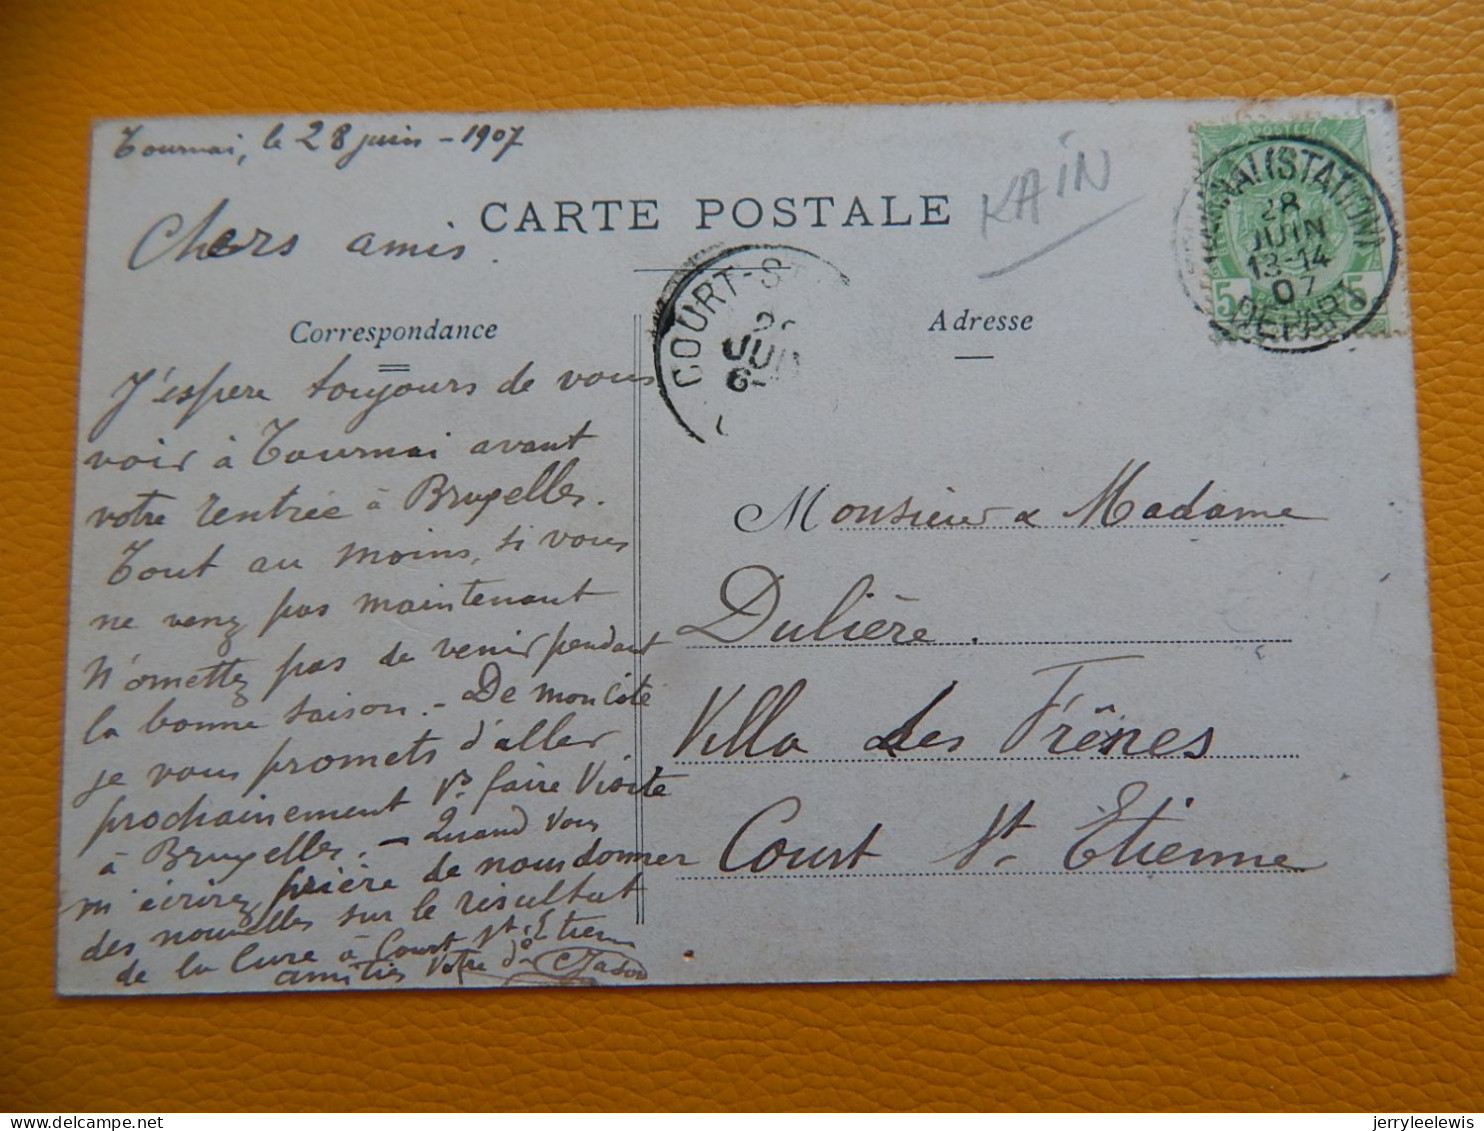 Tournai, le 28 juin - 1907
KAIN
CARTE POSTALE
Chers amis.
(STATION)
28
JUIN
13-14
07
DEPART
5 5
COURT-ST
JUI
6-
Correspondance
Adresse
J'espere toujours de vous
voir à Tournai avant
votre rentrée à Bruxelles.
Tout au moins, si vous
ne venez pas maintenant
N'omettez pas de venir pendant
la bonne saison. - De mon côté
je vous promets d'aller
prochainement vs faire visite
à Bruxelles. - Quand vous
m'écrirez prière de nous donner
des nouvelles sur le résultat
de la Cure à Court St. Etienne
amitiés Votre
Monsieur & Madame
Dulière.
Villa des Frênes
Court St. Etienne
jerryleelewis